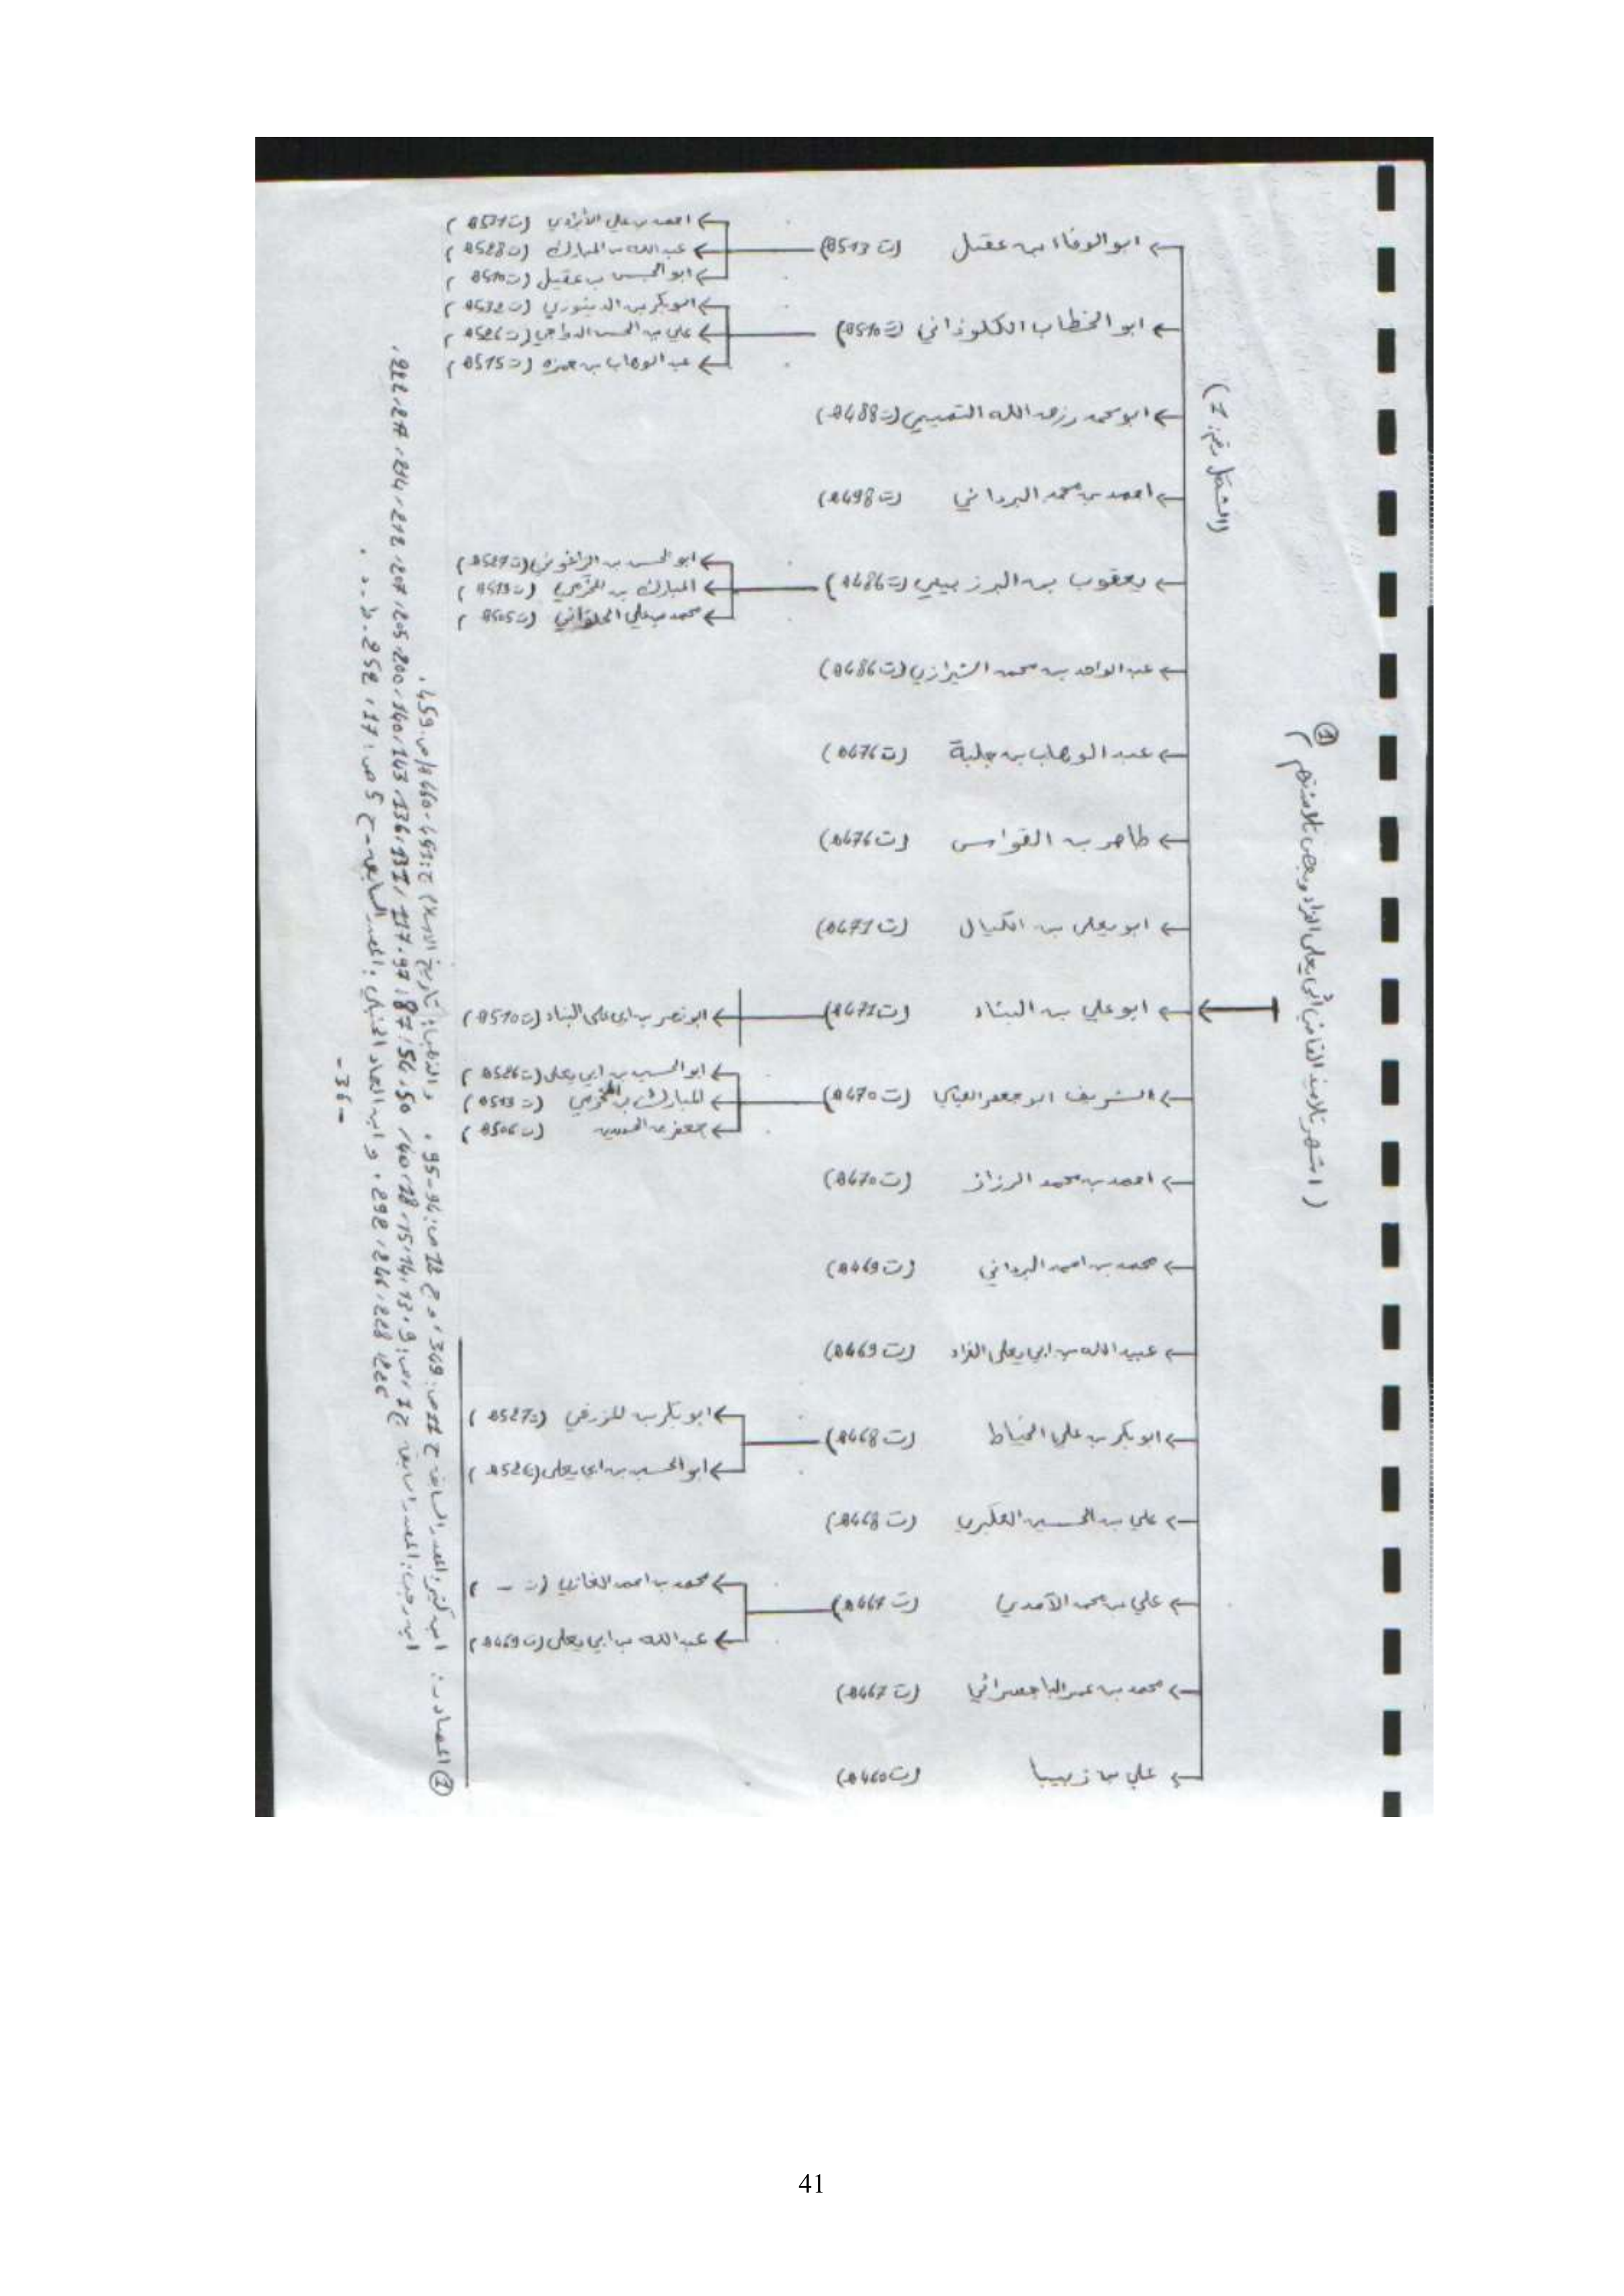 (اشهر تلاميذ القاضي أبي يعلى الفراء وبعض تلامذتهم) ①
(الشكل رقم: 1)
ابو الوفاء بن عقيل (ت 513ه)
احمد بن علي الأبرادي (ت 531ه)
عبد الله بن المبارك (ت 528ه)
ابو الحسن بن عقيل (ت 510ه)
ابو الخطاب الكلوذاني (ت 510ه)
ابو بكر بن الدينوري (ت 532ه)
علي بن الحسن الدواحي (ت 526ه)
عبد الوهاب بن حمزة (ت 515ه)
ابو محمد رزق الله التميمي (ت 488ه)
احمد بن محمد البرداني (ت 498ه)
يعقوب بن البرزبيني (ت 486ه)
ابو الحسن بن الزاغوني (ت 527ه)
المبارك بن المخرمي (ت 513ه)
محمد بن علي الحلواني (ت 505ه)
عبد الواحد بن محمد الشيرازي (ت 486ه)
عبد الوهاب بن جلبة (ت 476ه)
طاهر بن القواس (ت 476ه)
ابو يعلى بن الكيال (ت 471ه)
ابو علي بن البناء (ت 471ه)
ابو نصر بن ابي علي البناء (ت 510ه)
الشريف ابو جعفر العباسي (ت 470ه)
ابو الحسين بن ابي يعلى (ت 526ه)
المبارك بن المخرمي (ت 513ه)
جعفر بن الحسن (ت 506ه)
احمد بن محمد الرزاز (ت 470ه)
محمد بن احمد البرداني (ت 469ه)
عبيد الله بن ابي يعلى الفراء (ت 469ه)
ابو بكر بن علي الخياط (ت 468ه)
ابو بكر بن المزرفي (ت 527ه)
ابو الحسين بن ابي يعلى (ت 526ه)
علي بن الحسين العكبري (ت 468ه)
علي بن محمد الآمدي (ت 467ه)
محمد بن احمد الغازي (ت - )
عبد الله بن ابي يعلى (ت 469ه)
محمد بن عمر الباجسرائي (ت 467ه)
علي بن زبيبا (ت 460ه)
① المصادر: ابن كثير: المصدر السابق ج 11 ص: 349، و ج 12 ص: 94-95. و الذهبي: تاريخ الاسلام (ج: 451-460ه/ص 459.
ابن رجب: المصدر السابق ج 1، ص: 9، 13، 14، 15، 18، 40، 50، 54، 87، 97، 117، 131، 136، 143، 140، 200، 205، 207، 212، 214،
225، 228، 246، 298. و ابن العماد الحنبلي: المصدر السابق- ج 5 ص: 17، 252.
-36-
41